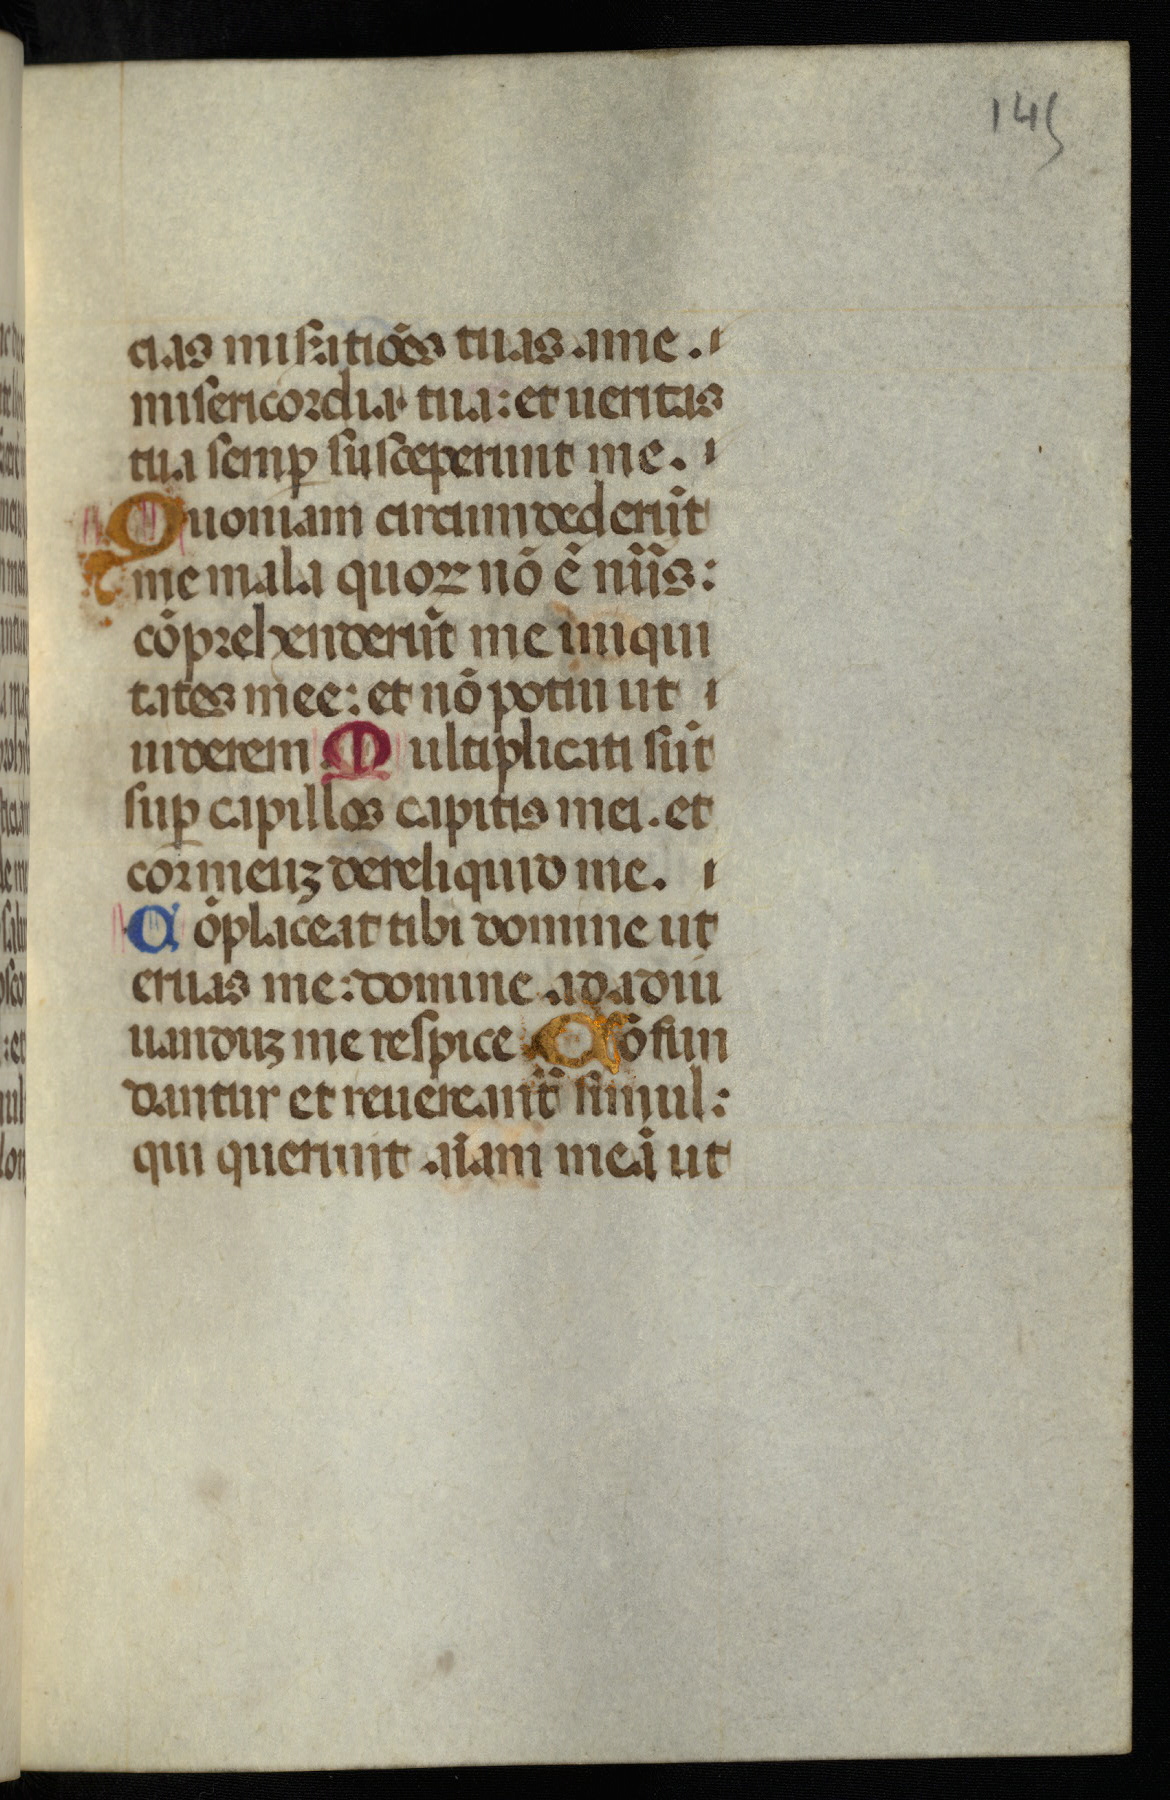 145
cias miſ'atiões tuas a me.
misericordia tua: et ueritas
tua semꝑ susceperunt me.
Quoniam circumdederūt
me mala quoꝝ nō ē nūūs:
cōprehenderūt me iniqui
tates mee: et nō potui ut
uiderem Multiplicati sūt
suꝑ capillos capitis mei. et
cor meuꝫ dereliquid me.
Cōplaceat tibi domine ut
eruas me: domine ad adiu
uanduꝫ me respice Cōfun
dantur et reuereant̄ simul:
qui querunt aīam meā ut